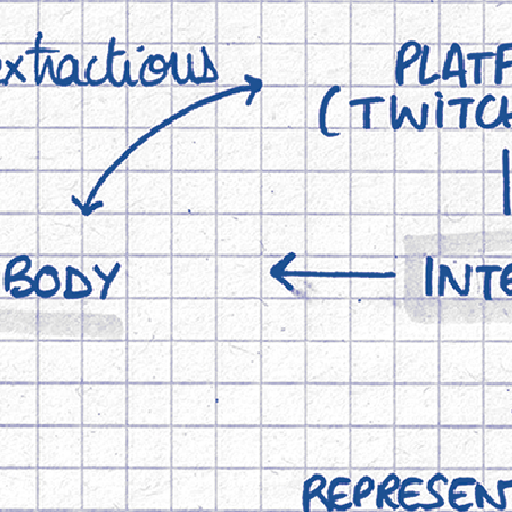 extractions
PLATF
(TWITCH
BODY
INTE
REPRESEN